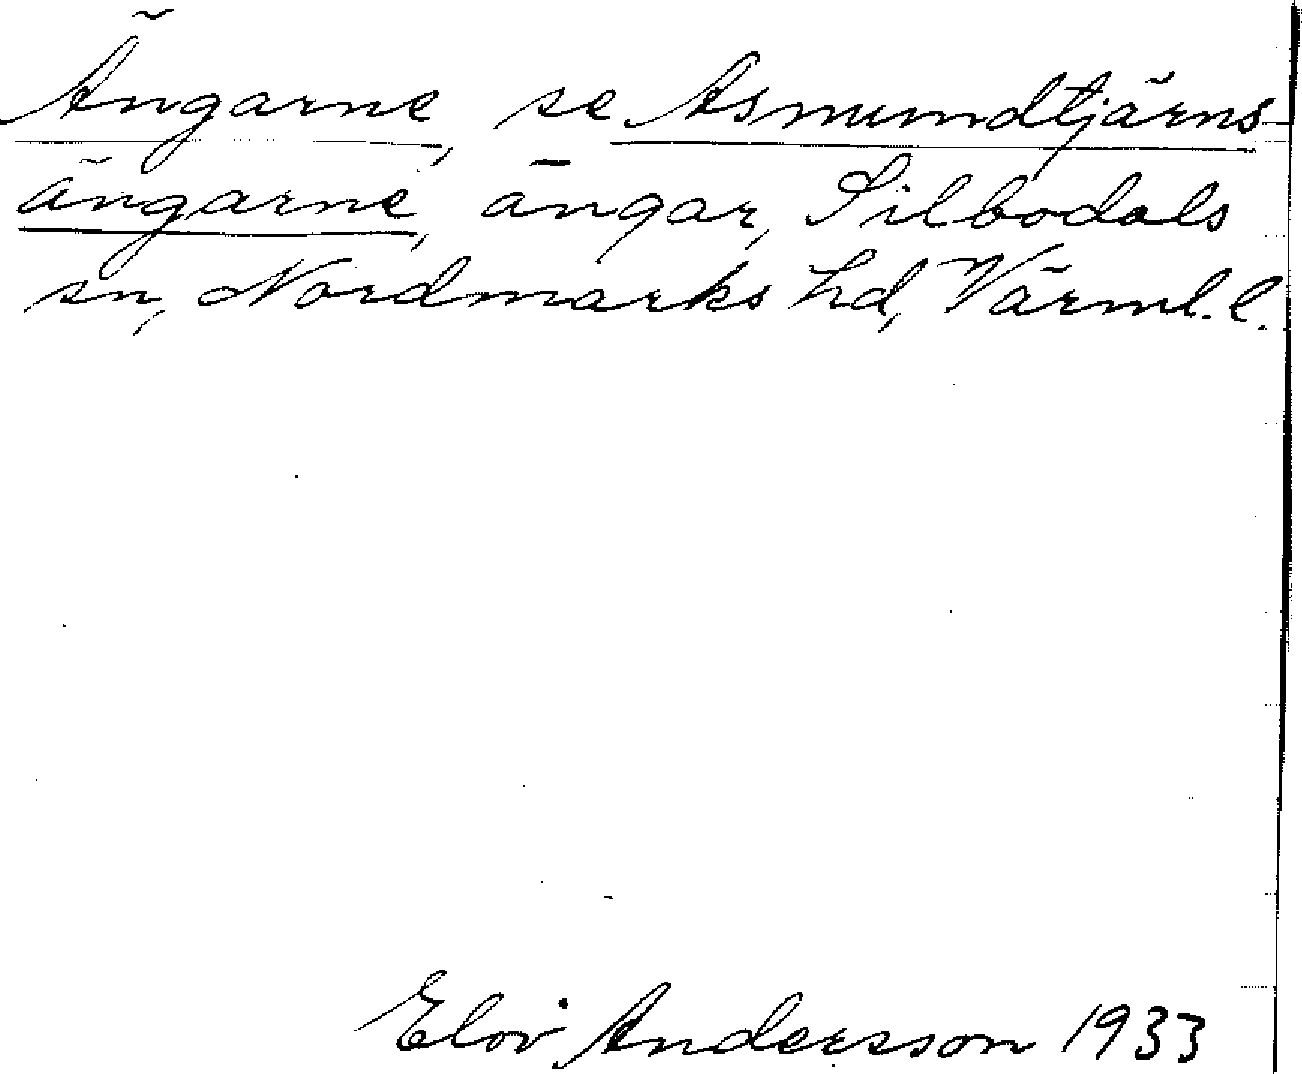 Ängarne, se Asmundtjärns
ängarne, ängar, Silbodals
sn, Nordmarks hd, Värml. l.
Elov Andersson 1933